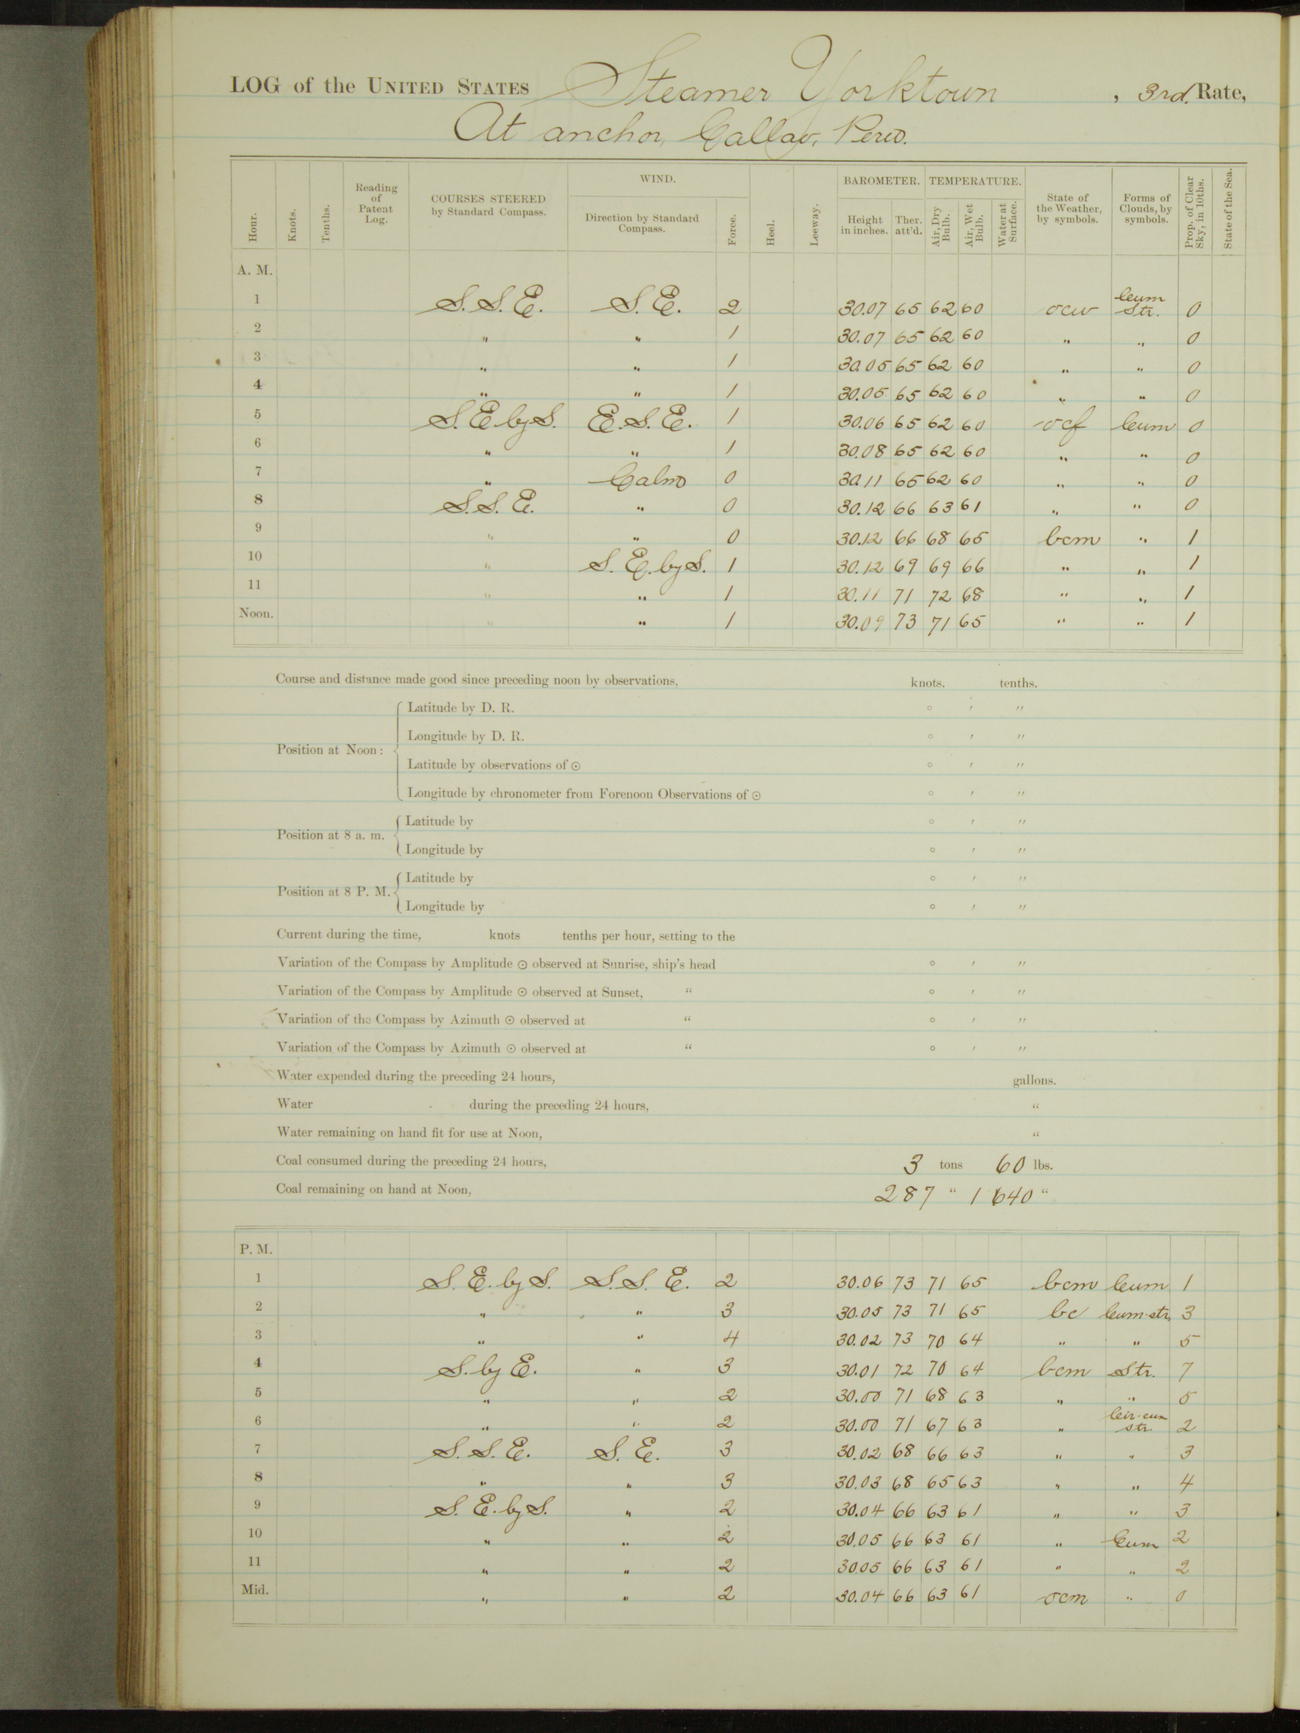 LOG of the UNITED STATES Steamer Yorktown , 3rd. Rate,
At anchor, Callao, Peru.
Hour. Knots. Tenths. Reading of Patent Log. COURSES STEERED by Standard Compass. WIND. Direction by Standard Compass. Force. Heel. Leeway. BAROMETER. Height in inches. Ther. att'd. TEMPERATURE. Air, Dry Bulb. Air, Wet Bulb. Water at Surface. State of the Weather, by symbols. Forms of Clouds, by symbols. Prop. of Clear Sky, in 10ths. State of the Sea.
A. M.
1 S. S. E. S. E. 2 30.07 65 62 60 ocw Cum Str. 0
2 " " 1 30.07 65 62 60 " " 0
3 " " 1 30.05 65 62 60 " " 0
4 " " 1 30.05 65 62 60 " " 0
5 S. E by S. E. S. E. 1 30.06 65 62 60 ocf Cum 0
6 " " 1 30.08 65 62 60 " " 0
7 " Calm 0 30.11 65 62 60 " " 0
8 S. S. E. " 0 30.12 66 63 61 " " 0
9 " " 0 30.12 66 68 65 bcm " 1
10 " S. E. by S. 1 30.12 69 69 66 " " 1
11 " " 1 30.11 71 72 68 " " 1
Noon. " " 1 30.09 73 71 65 " " 1
Course and distance made good since preceding noon by observations, knots. tenths.
Position at Noon: Latitude by D. R. ° ′ ″
Longitude by D. R. ° ′ ″
Latitude by observations of ☉ ° ′ ″
Longitude by chronometer from Forenoon Observations of ☉ ° ′ ″
Position at 8 a. m. Latitude by ° ′ ″
Longitude by ° ′ ″
Position at 8 P. M. Latitude by ° ′ ″
Longitude by ° ′ ″
Current during the time, knots tenths per hour, setting to the
Variation of the Compass by Amplitude ☉ observed at Sunrise, ship's head ° ′ ″
Variation of the Compass by Amplitude ☉ observed at Sunset, “ ° ′ ″
Variation of the Compass by Azimuth ☉ observed at “ ° ′ ″
Variation of the Compass by Azimuth ☉ observed at “ ° ′ ″
Water expended during the preceding 24 hours, gallons.
Water during the preceding 24 hours, “
Water remaining on hand fit for use at Noon, “
Coal consumed during the preceding 24 hours, 3 tons 60 lbs.
Coal remaining on hand at Noon, 287 “ 1640 “
P. M.
1 S. E. by S. S. S. E. 2 30.06 73 71 65 bcm Cum 1
2 " " 3 30.05 73 71 65 bc Cum-str. 3
3 " " 4 30.02 73 70 64 " " 5
4 S. by E. " 3 30.01 72 70 64 bcm Str. 7
5 " " 2 30.00 71 68 63 " " 5
6 " " 2 30.00 71 67 63 " Cir-cum str. 2
7 S. S. E. S. E. 3 30.02 68 66 63 " " 3
8 " " 3 30.03 68 65 63 " " 4
9 S. E. by S. " 2 30.04 66 63 61 " " 3
10 " " 2 30.05 66 63 61 " Cum 2
11 " " 2 30.05 66 63 61 " " 2
Mid. " " 2 30.04 66 63 61 ocm " 0